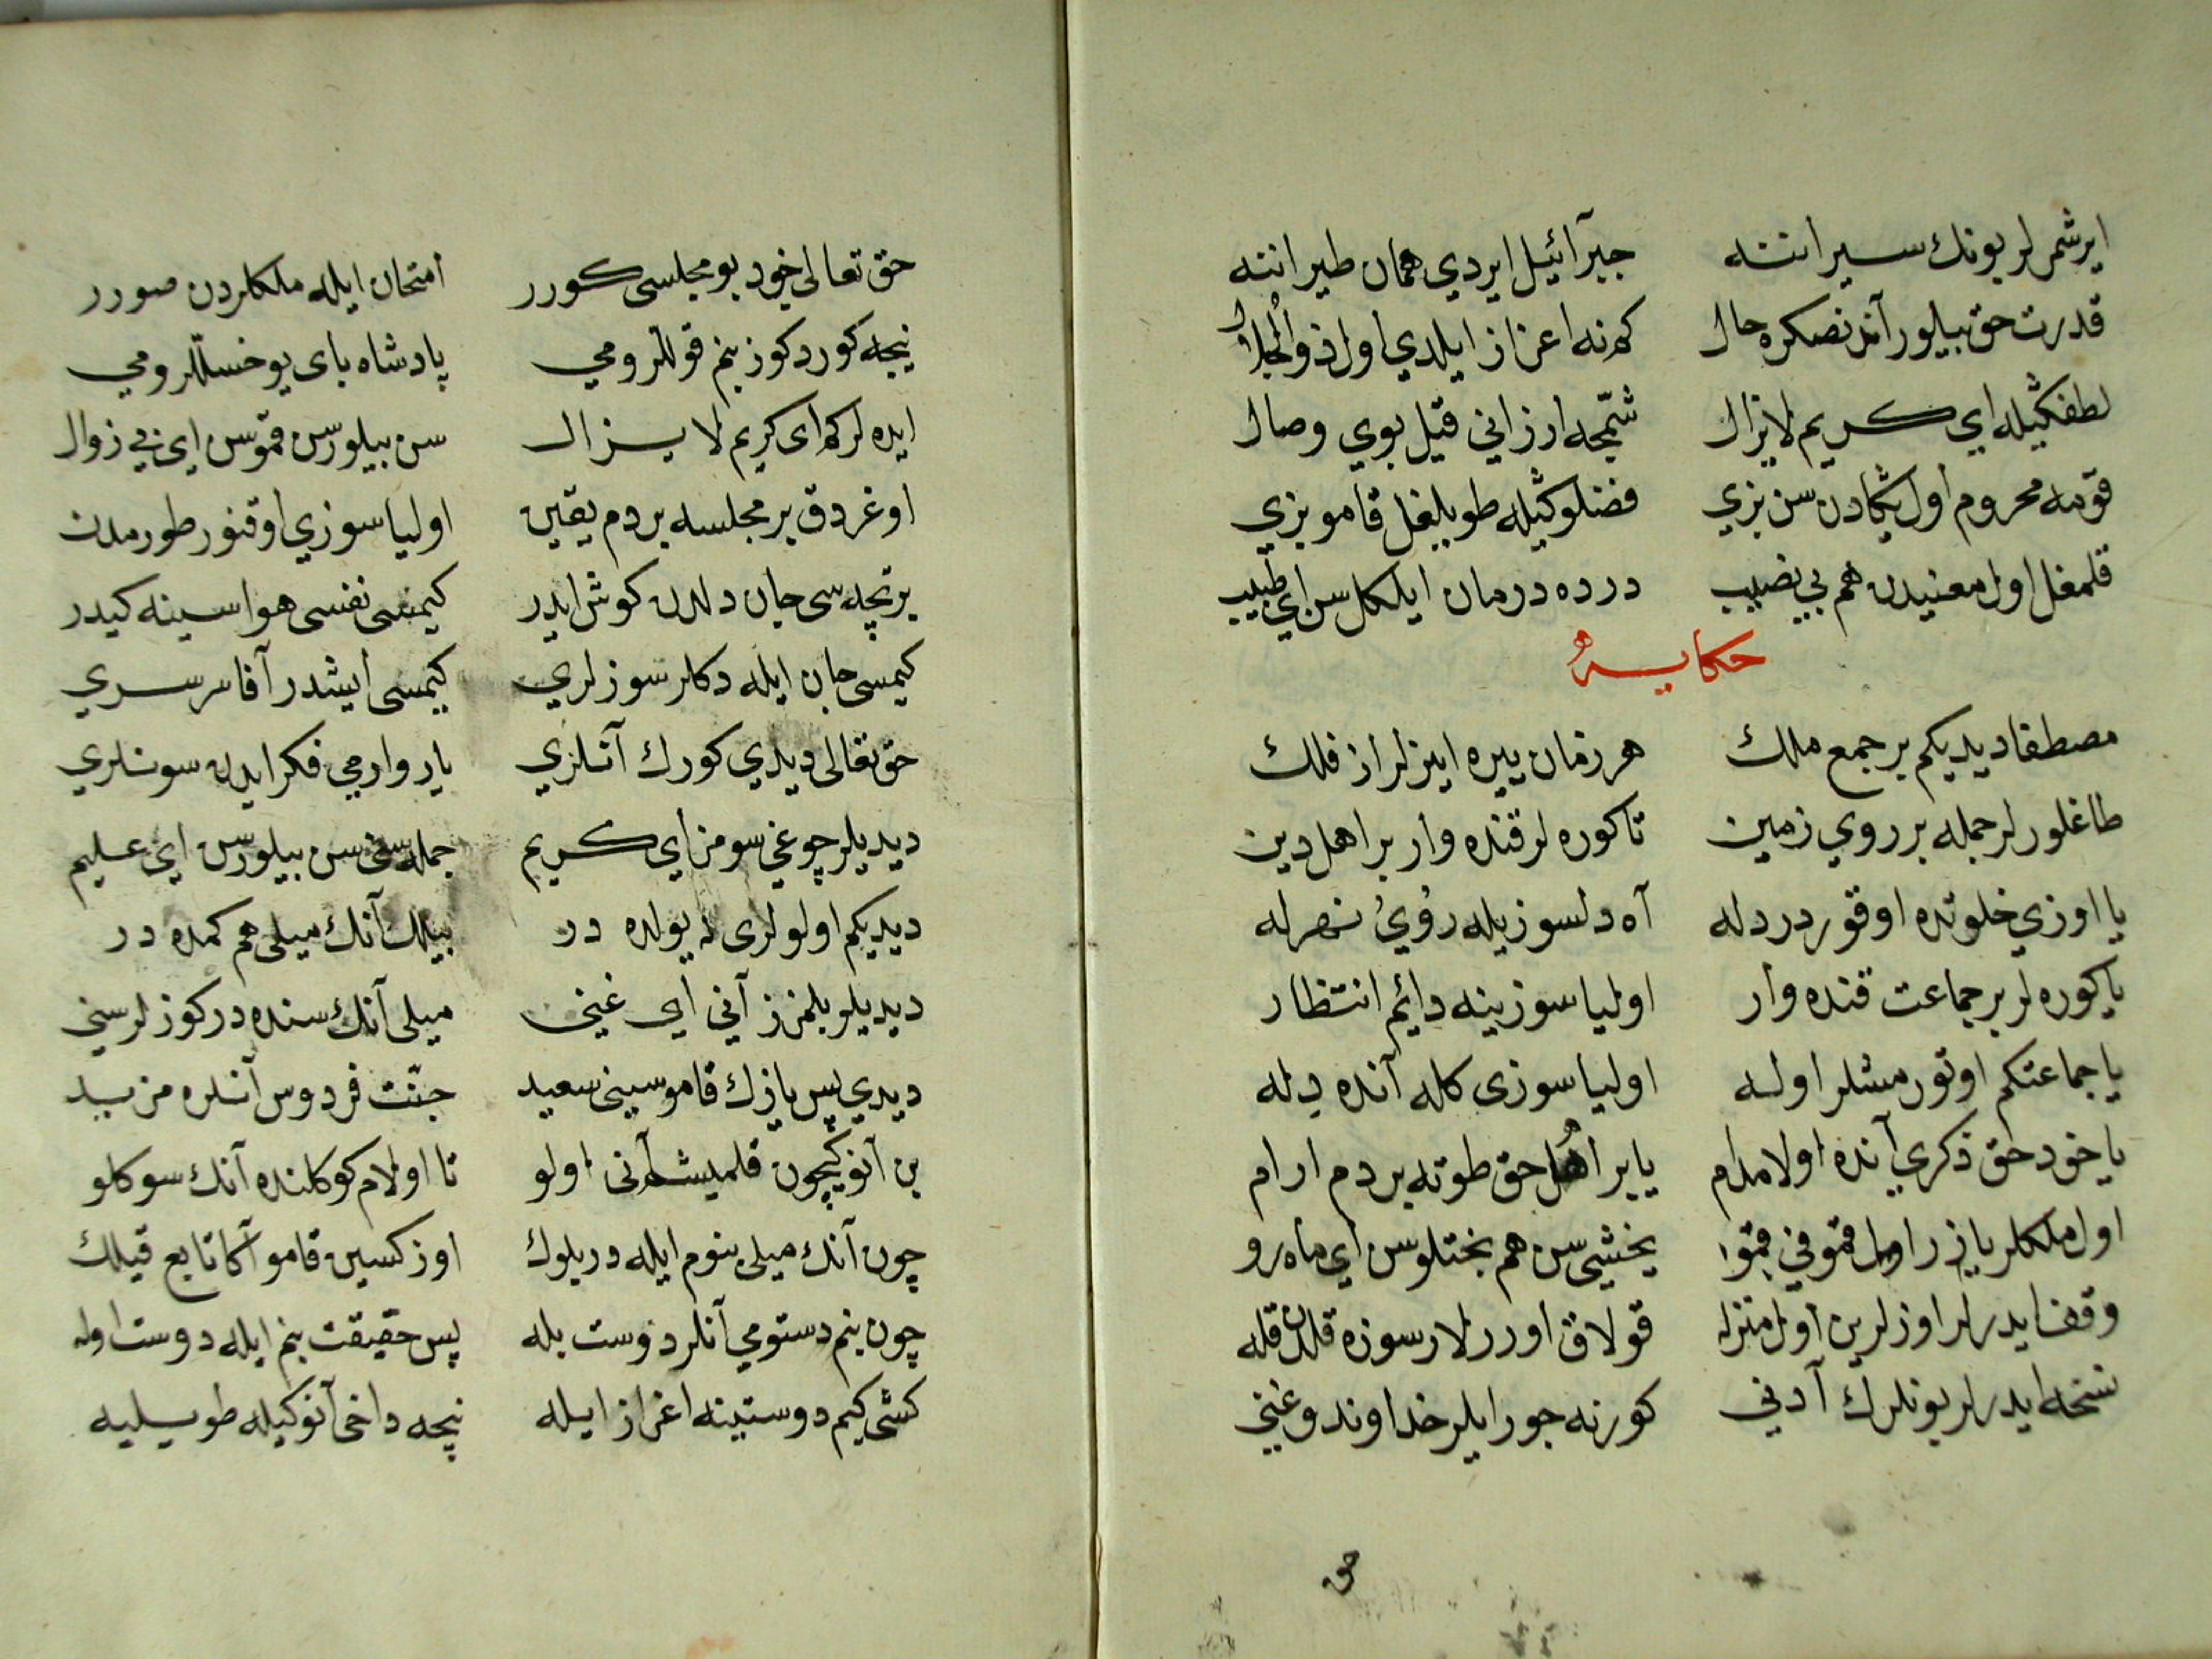 ايرشمزلر بونك سيرانته جبرآئيل ايردي همان طيرانته
قدرت حق بيلور آندنصكره حال كه نه اعزاز ايلدي اول ذوالجلال
لطفكيله اي كريم لايزال شمّجه ارزاني قيل بوي وصال
قومه محروم اول يكادن سن بزي فضلوكيله طويلغل قامو بزي
قلمغل اول معنيدن هم بي نصيب درده درمان ايلكل سن اي طبيب
حكايه
مصطفا ديديكم بر جمع ملك هر زمان ييره اينرلر از فلك
طاغلورلر جمله بر روي زمين تا كوره لر قنده وار بر اهل دين
يا اوزي خلوتده اوقور درد له آه دلسوزيله روي نهرله
يا كوره لر بر جماعت قنده وار اوليا سوزينه دائم انتظار
يا جماعتكم اوتورمشلر اوله اوليا سوزى كله آنده دله
يا خود حق ذكري آنده اولا مدام يا بر اهل حق طوته بر دم ارام
اول ملكلر يازر اول قمو في قمو يخشي سن هم بختلوسن اي ماه رو
وقف ايدرلر اوزلرين اول منزله قولاق اوررلار سوزه قلدن قله
نسخه ايدرلر بونلرك آدني كورنه جور ايلر خداوند و غني
حق
حق تعالى خود بو مجلسى كورر امتحان ايله ملكلردن صورر
نيجه كوردكوز بنم قوللرومي پادشاه باى يوخسللرومي
ايده لر كه اى كريم لا يزال سن بيلورسن قموس اي بي زوال
اوغردق بر مجلسه بر دم يقين اوليا سوزي اوقنور طورمدن
برنچه سى جان دلدن كوش ايدر كيمسى نفسى هواسينه كيدر
كيمسى جان ايله دكلر سوزلري كيمسى ايشدر آقا سرسري
حق تعالى ديدي كورك آنلري يار وارمي فكر ايدن سونلري
ديديلر چوغي سومز اي كريم جمله سني سن بيلورسن اي عليم
ديديكم اولولرى نه يولده در بيلك آنك ميلى هم كمده در
ديديلر بلمزز آني اي غني ميلى آنك سنده در كوزلر سني
ديدي پس يازك قاموسيني سعيد جنّت فردوس آنلره مزيد
بن آنوكيچون قلميشم آنى اولو تا اولام كوكلنده آنك سوكلو
چون آنك ميلى بنوم ايله دريلوك اوزكسين قامو آكا تابع قيلك
چون بنم دستومي آنلر دوست بله پس حقيقت بنم ايله دوست اوله
كشى كيم دوستينه اعزاز ايله نيچه داخى آنوكيله طويليه